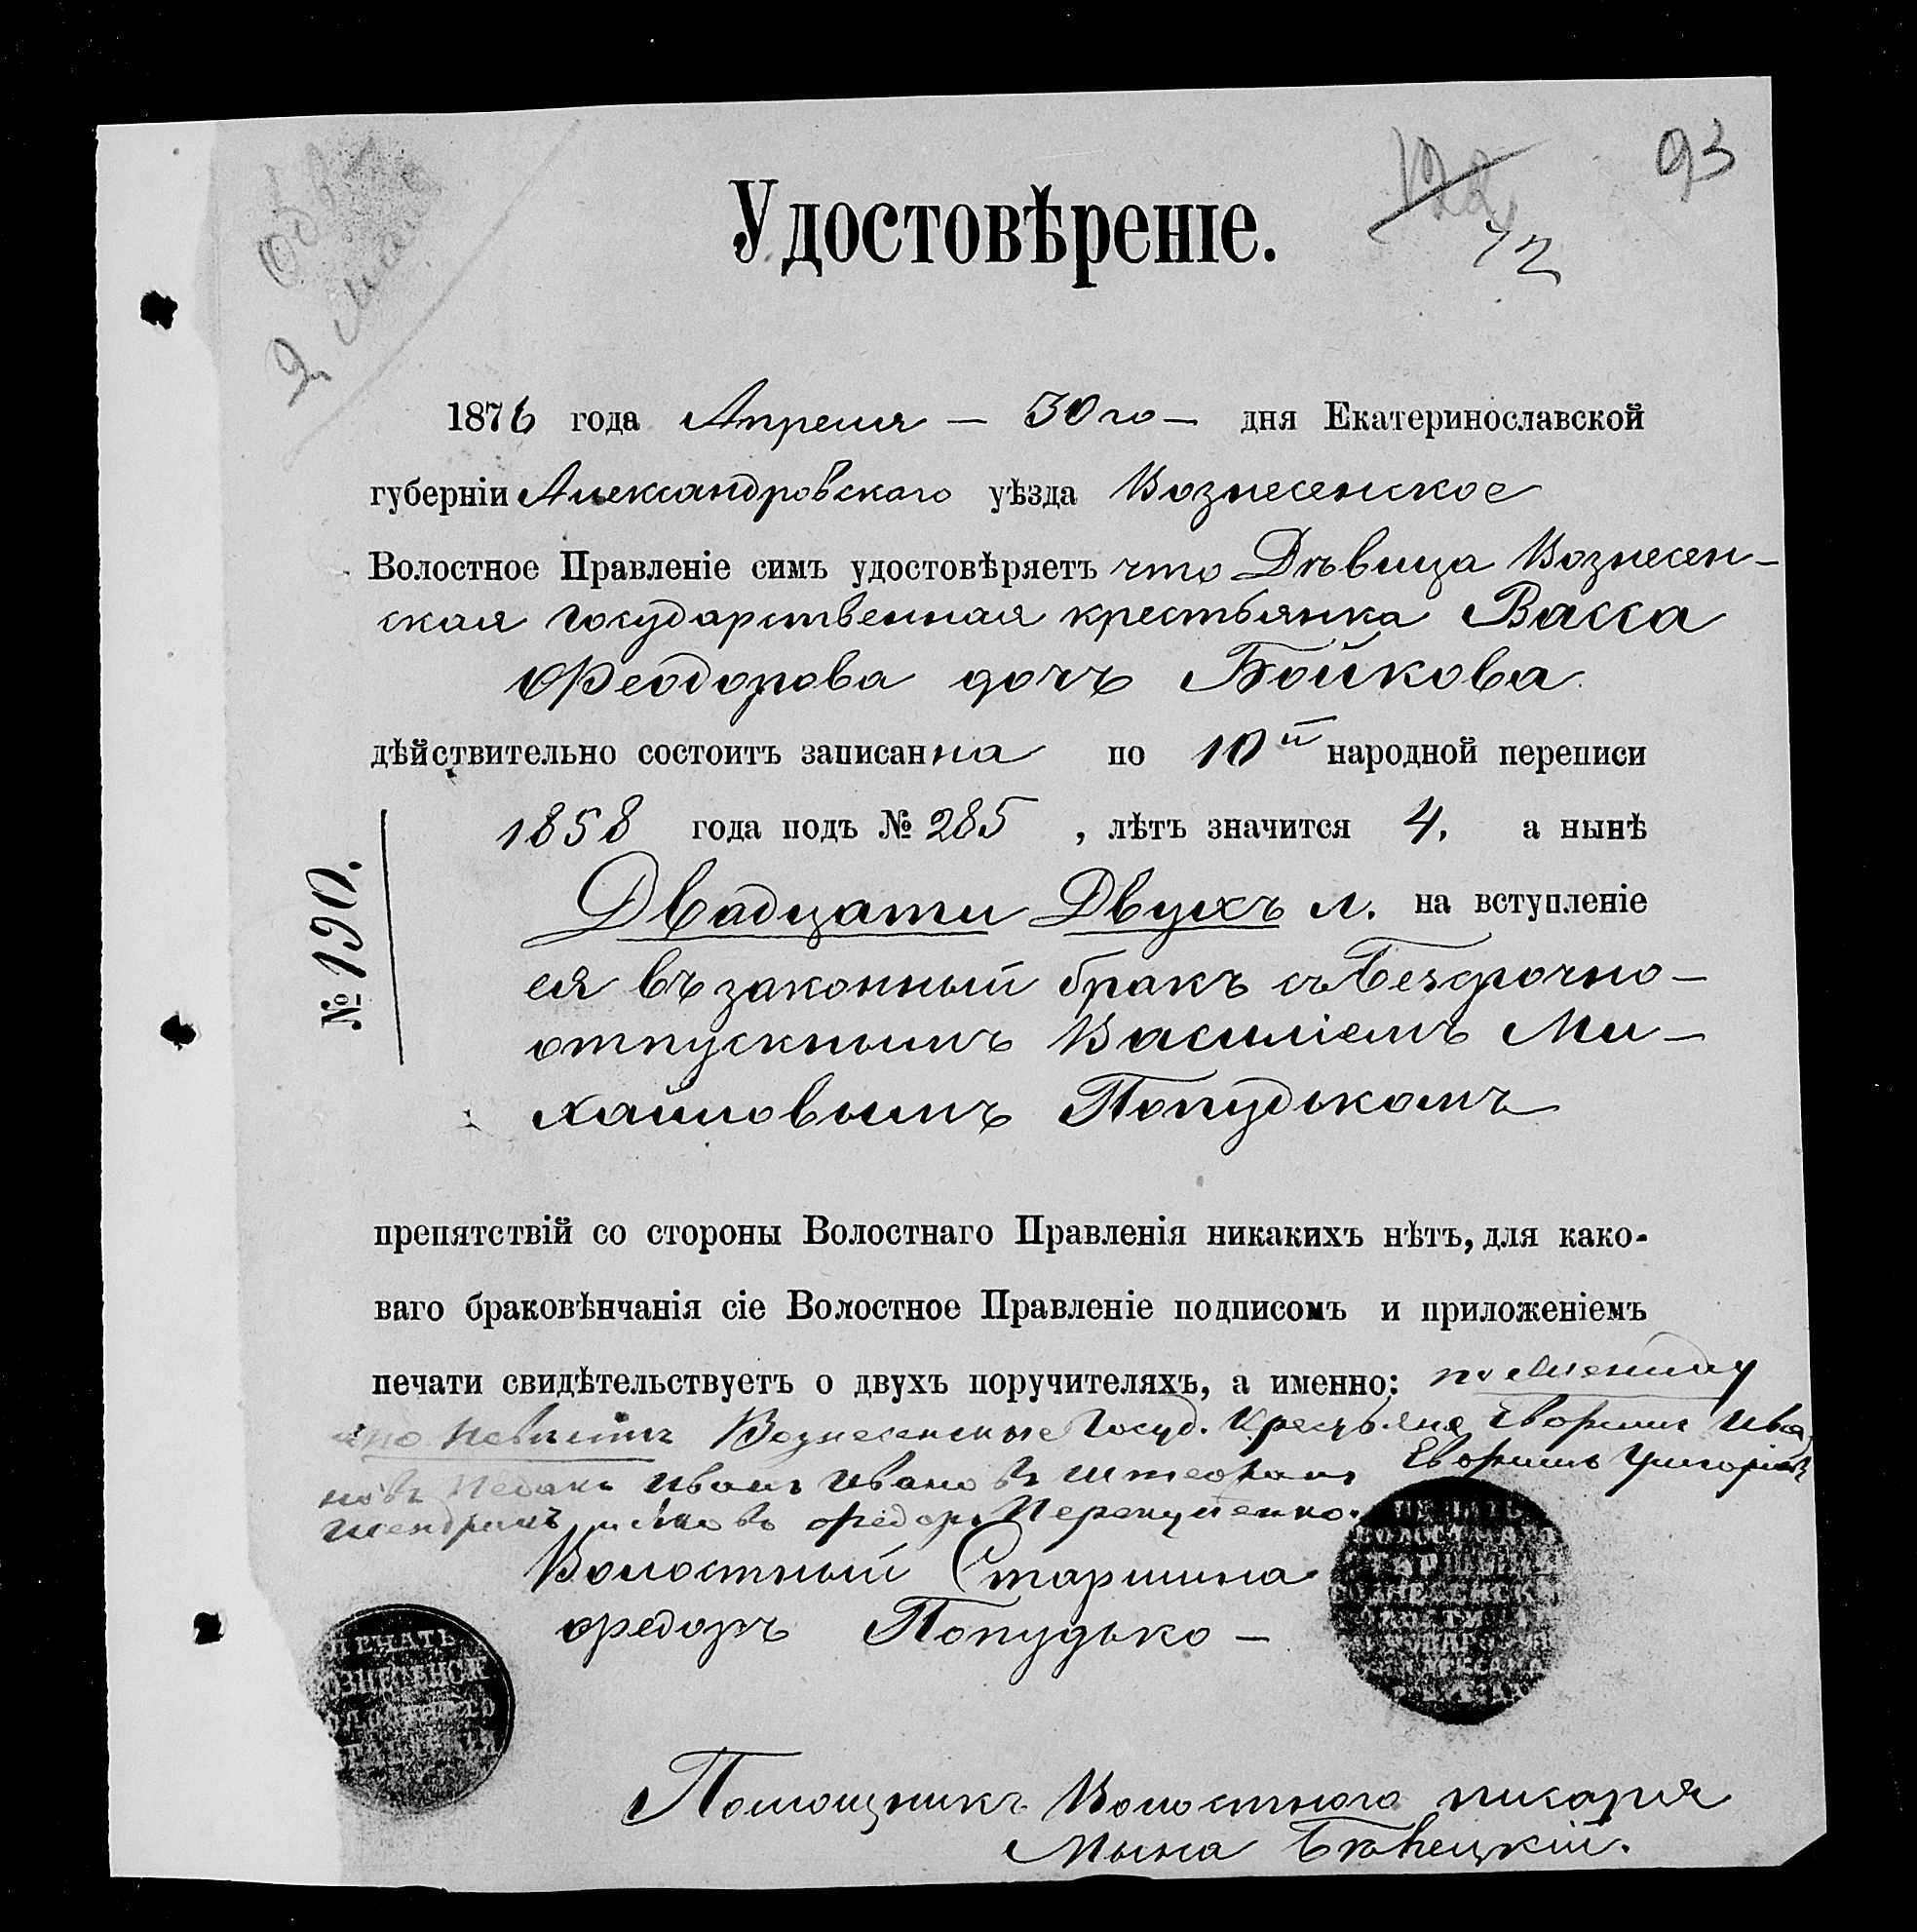 93
122
72
Удостовѣреніе.
2 мая
1876 года Апреля — 30го — дня Екатеринославской
губерніи Александровскаго уѣзда Вознесенское
Волостное Правленіе симъ удостовѣряетъ что Дѣвица Вознесен-
ская государственная крестьянка Васса
Феодорова дочь Бойкова
дѣйствительно состоитъ записанна по 10й народной переписи
1858 года подъ № 285 , лѣтъ значится 4. а нынѣ
№ 190.
Двадцати Двухъ л. на вступленіе
ея въ законный бракъ съ Безсрочно-
отпускнымъ Василіемъ Ми-
хайловымъ Попудькомъ
препятствій со стороны Волостнаго Правленія никакихъ нѣтъ, для како-
ваго браковѣнчанія сіе Волостное Правленіе подписомъ и приложеніемъ
печати свидѣтельствуетъ о двухъ поручителяхъ, а именно: по жениху
Вознесенские Госуд. Крестьяне Ива
новъ Иванъ Ивановъ
Федоръ
Волостный Старшина
Федоръ Попудько —
ПЕЧАТЬ
ВОЛОСТНАГО
СТАРШИНЫ
ПЕЧАТЬ
ВОЗНЕСЕНСК
Помощникъ Волостнаго писаря